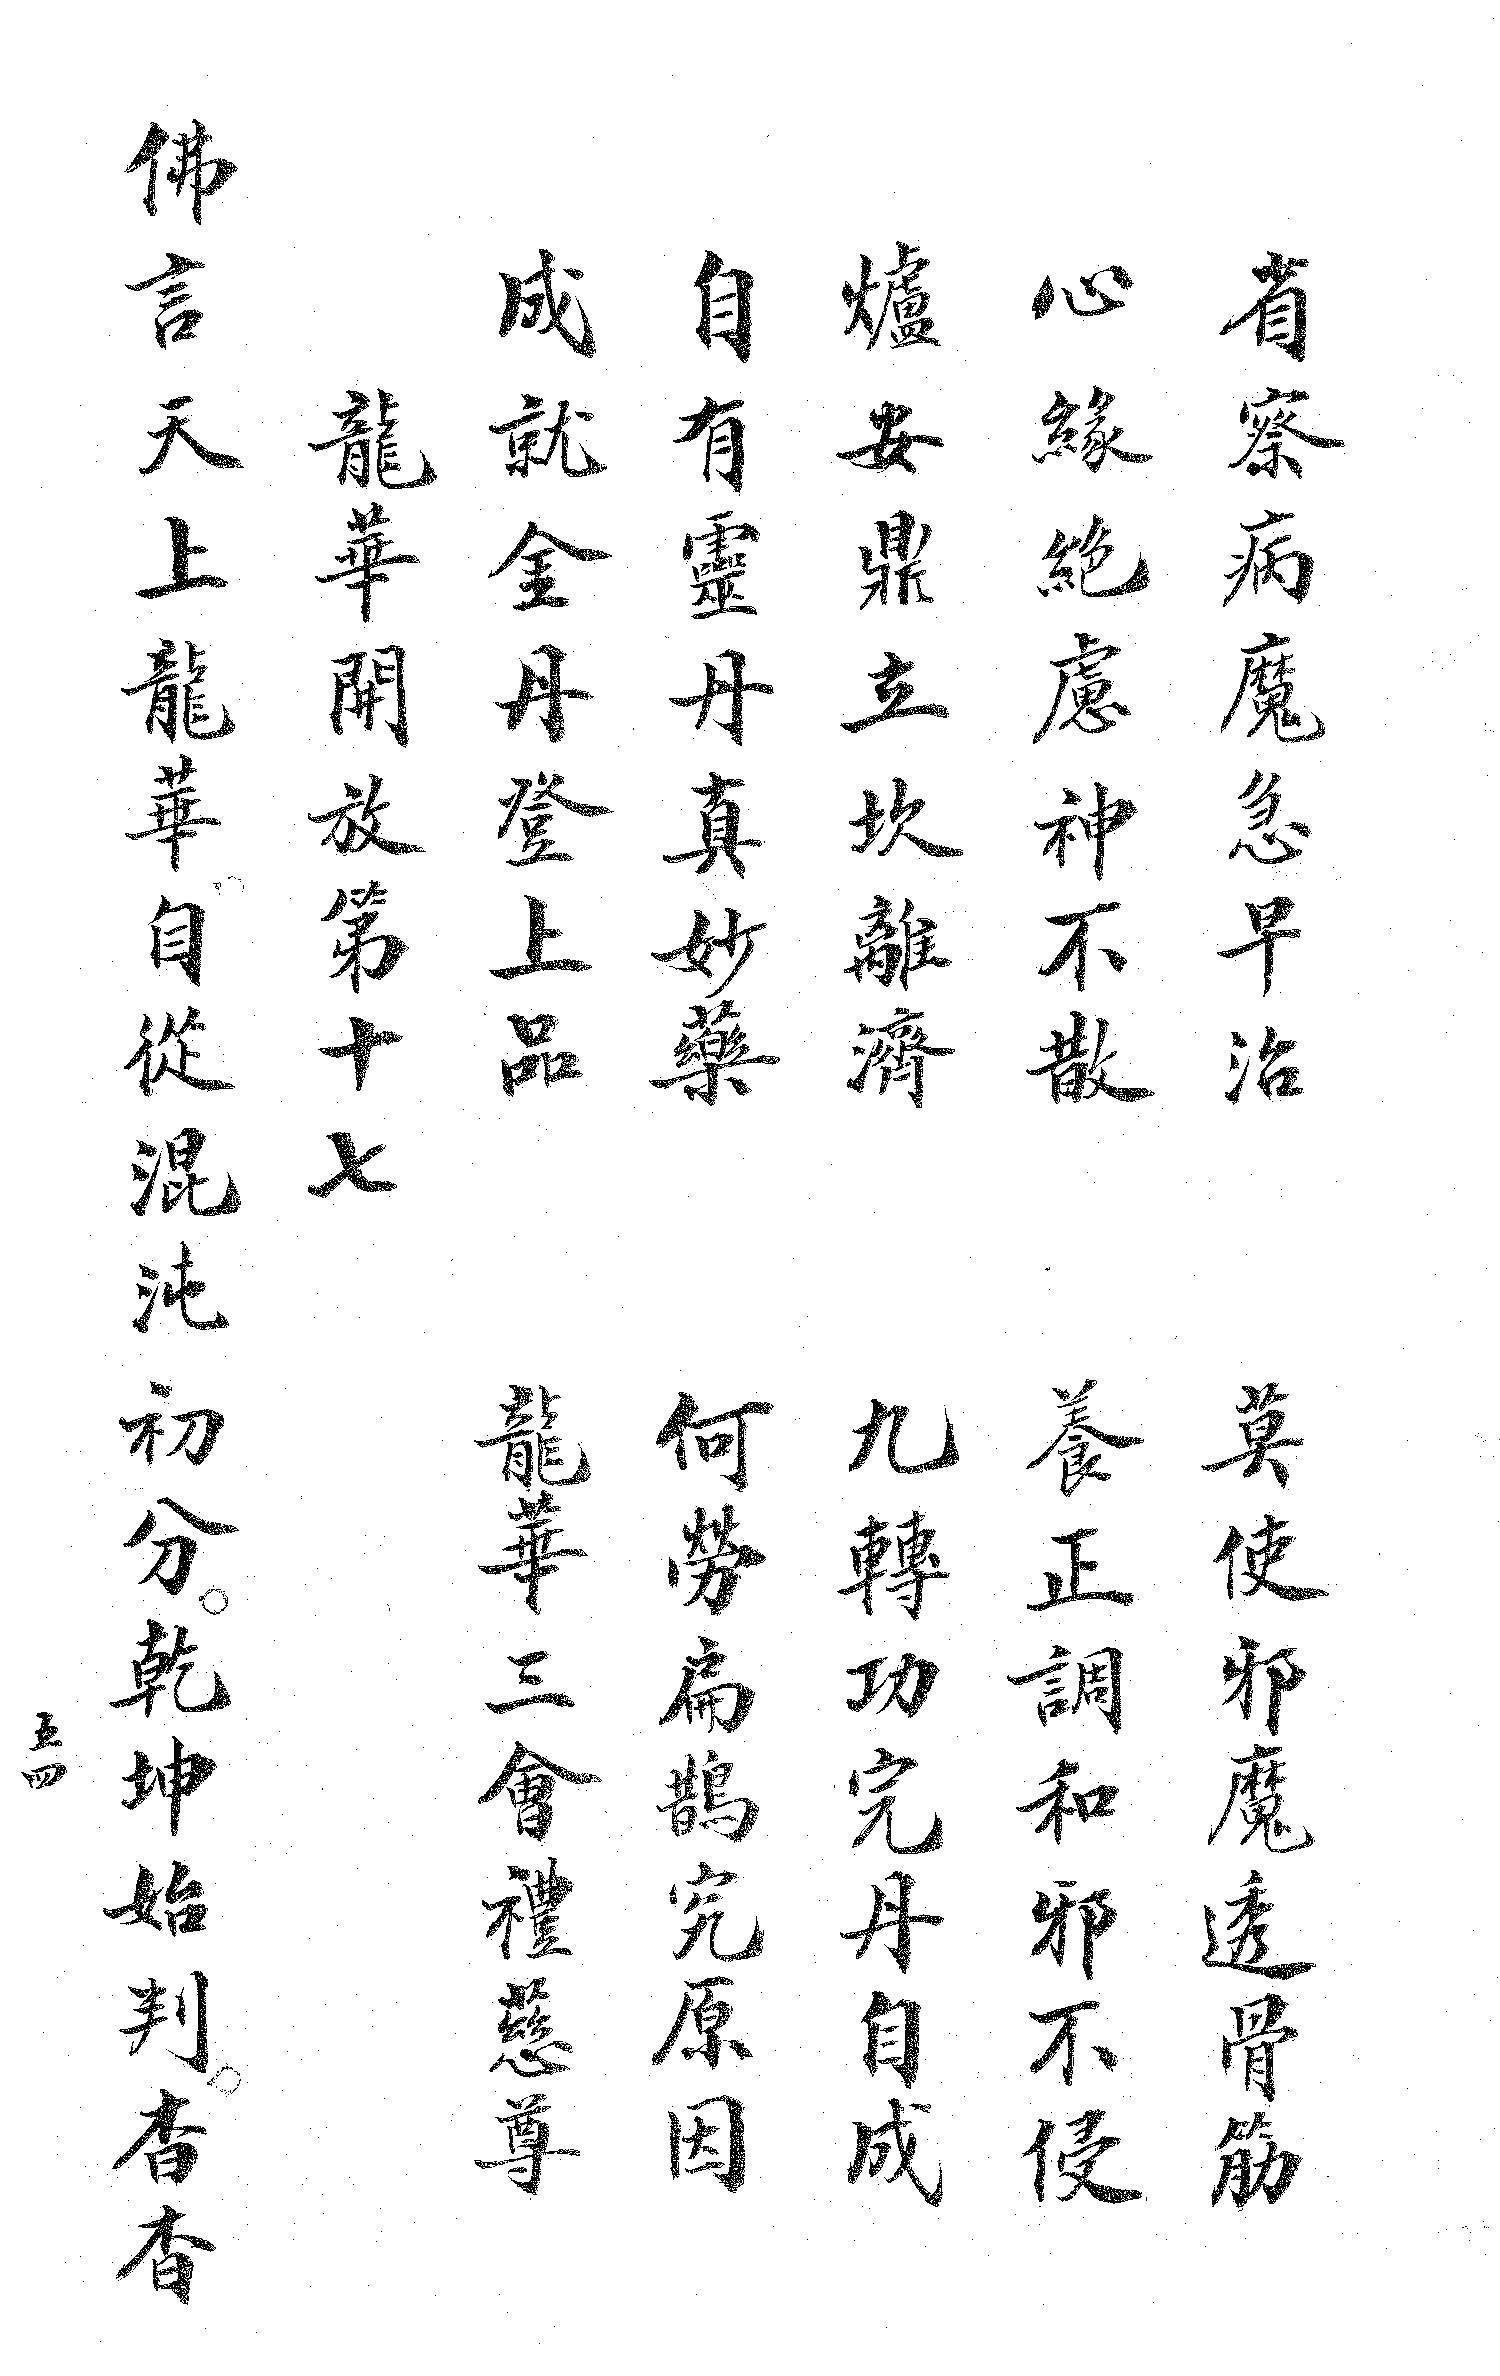 省察病魔急早治　莫使邪魔透骨筋
心緣絕慮神不散　養正調和邪不侵
爐安鼎立坎離濟　九轉功完丹自成
自有靈丹真妙藥　何勞扁鵲究原因
成就金丹登上品　龍華三會禮慈尊
龍華開放第十七
佛言天上龍華。自從混沌初分。乾坤始判。杳杳
五四